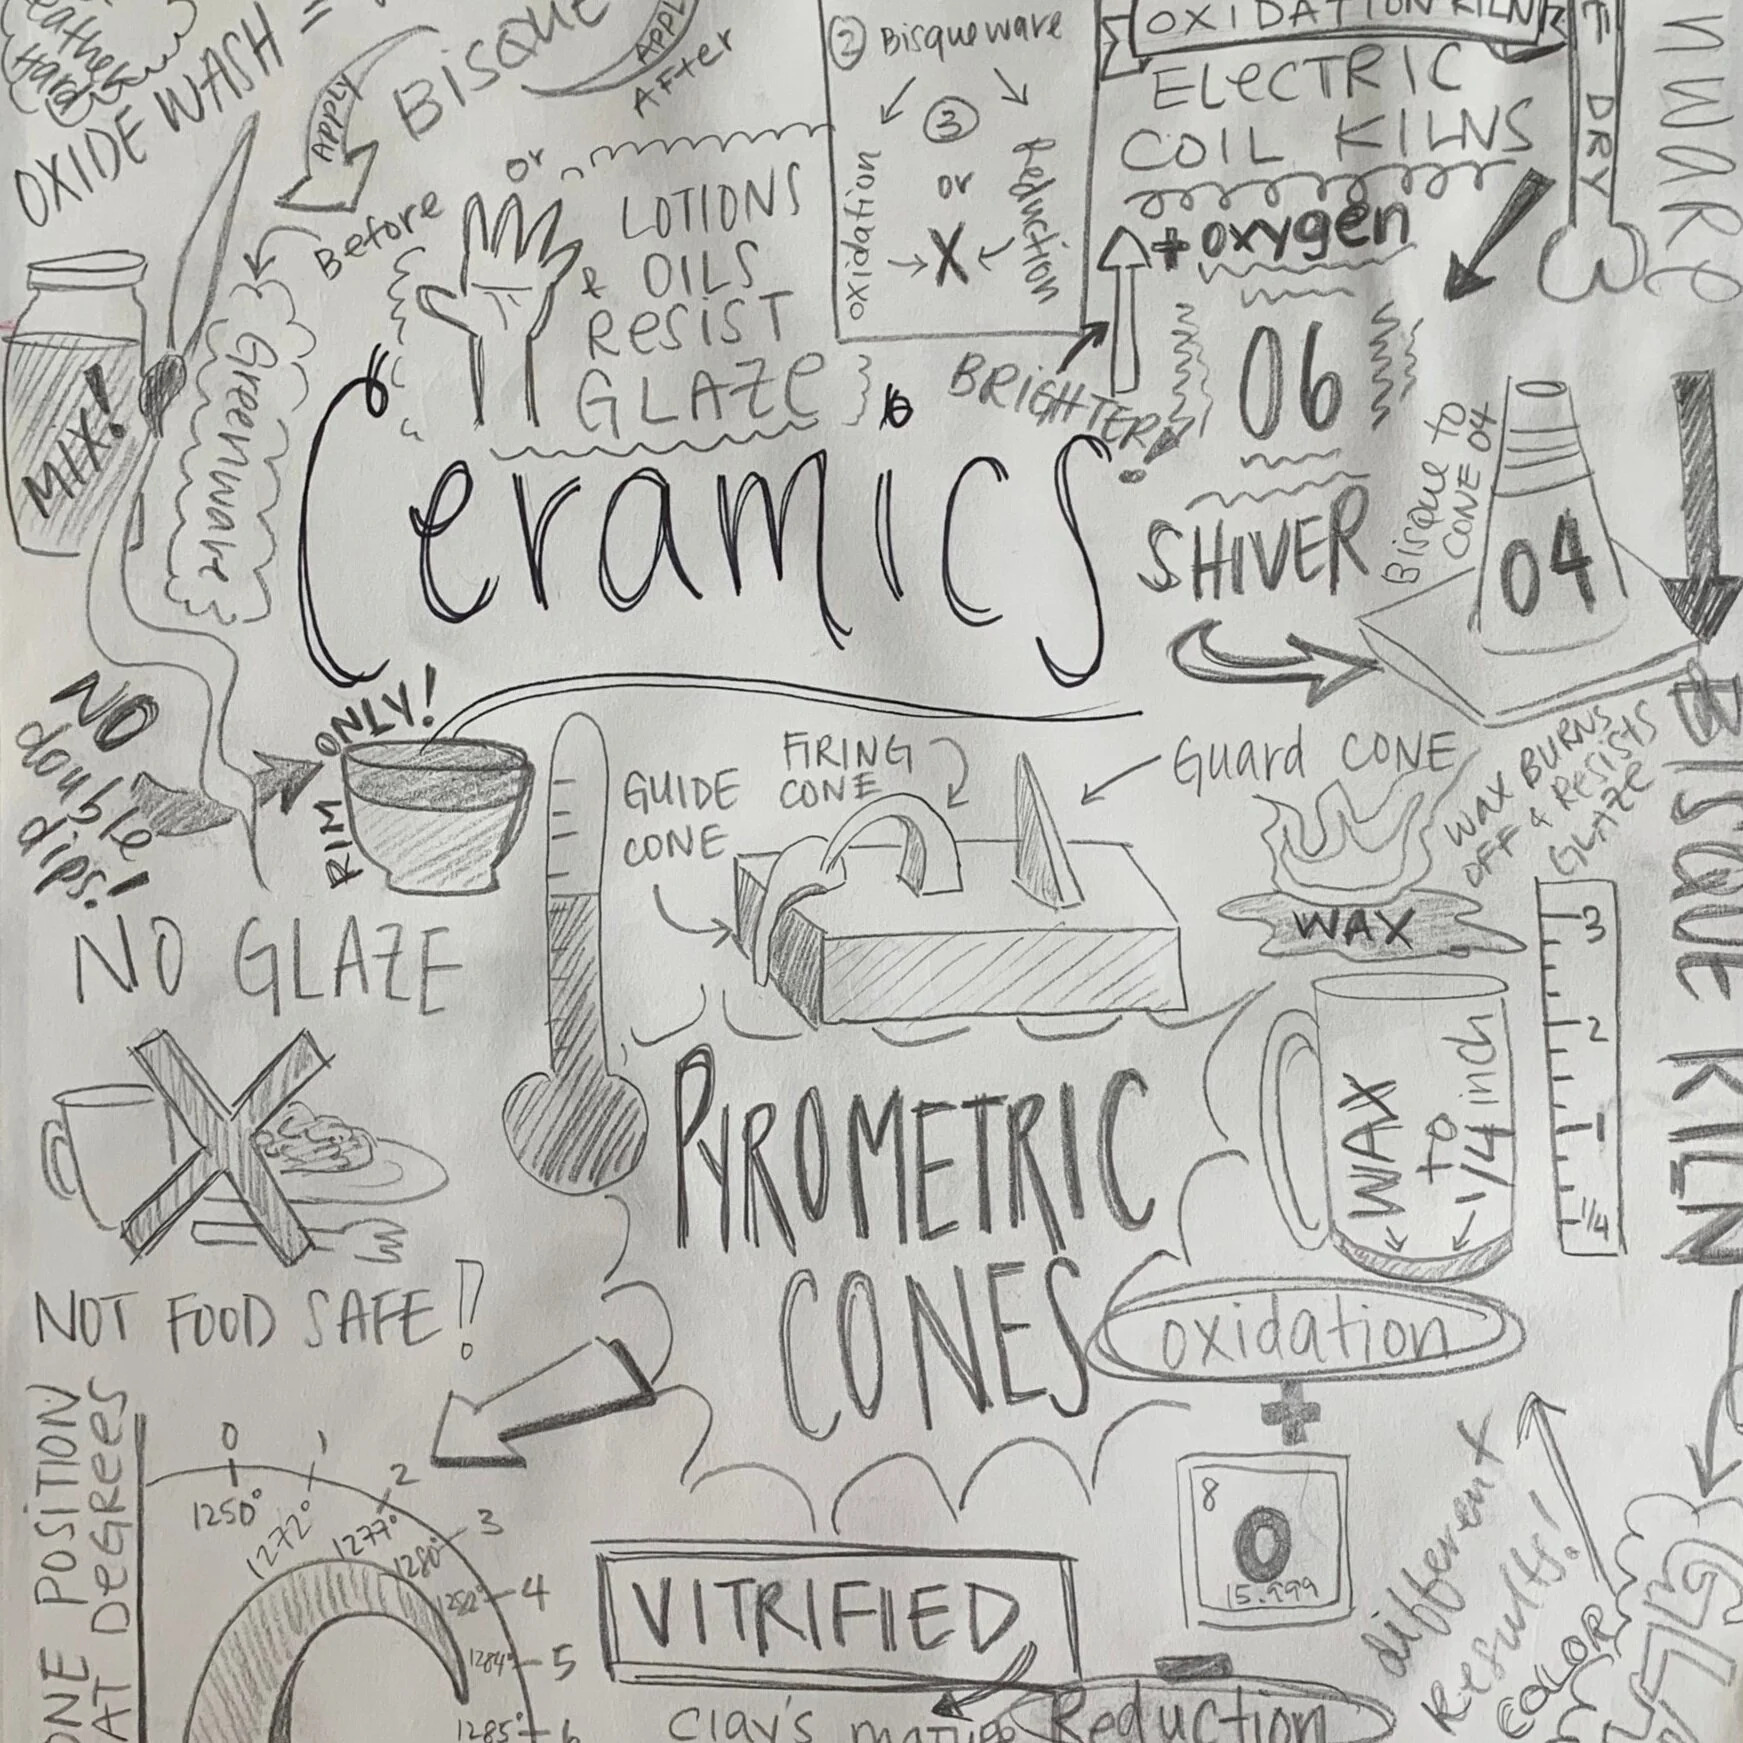 OXIDE WASH =
Bisque
APPLY
APPLY
Before
or
After
Greenware
MIX!
LOTIONS
& OILS
Resist
GLAZe
② Bisqueware
③
oxidation
or
Reduction
X
OXIDATION KILN
ELeCTRIC
COIL KILNS
+ oxygen
BRiGHTER
DRY
nware
06
SHIVER
Bisque to
CONE 04
04
Ceramics
NO
double
dips!
RIM
ONLY!
NO GLAZE
GUIDE
CONE
FIRING
CONE
Guard CONE
WAX BURNS
OFF & Resists
GLAZe
WAX
BISQUE KILN
3
2
1
1/4
WAX
to
1/4 inch
PYROMETRIC
CONES
NOT FOOD SAFE!
oxidation
+
8
O
15.999
Reduction
different
Results!
COLOR
VITRIFIED
Clay's mature
ONE POSITION
AT DeGRees
0
1
2
3
4
5
6
1250°
1272°
1277°
1280°
1282°
1284°
1285°